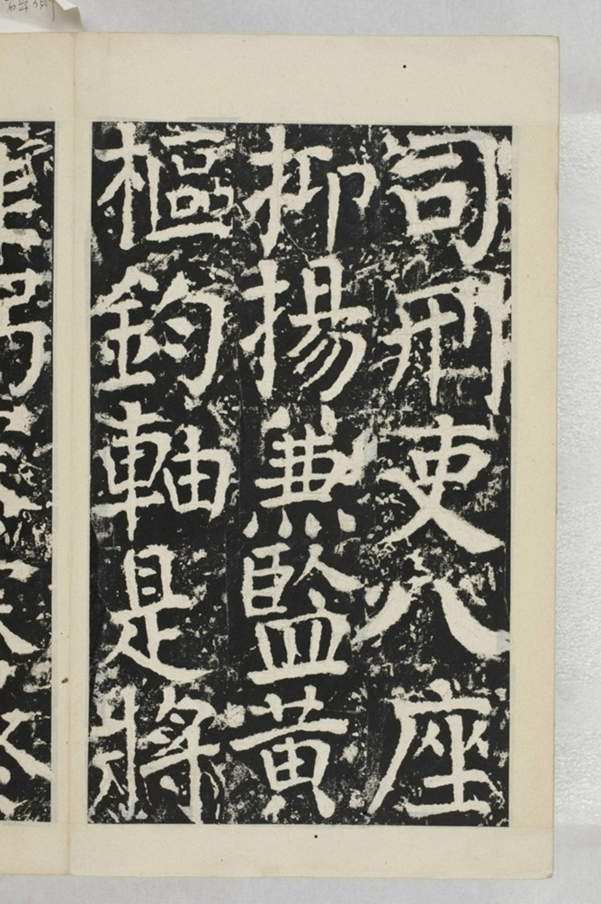 司刑吏八座
抑揚兼監黃
樞鈞軸是將